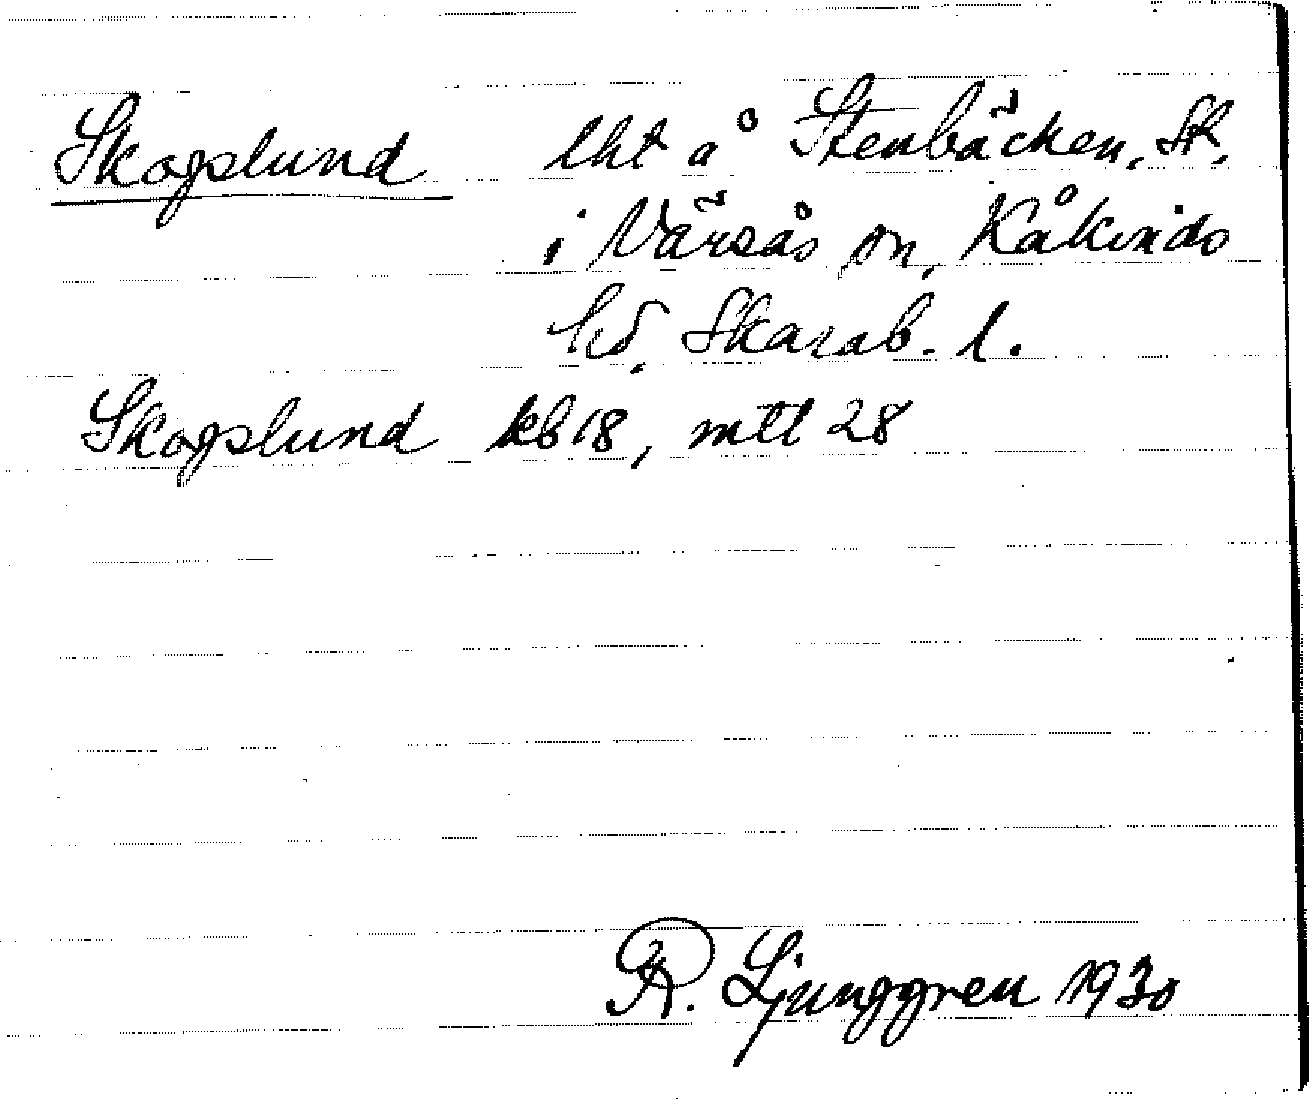 Skogslund lht å Stenbäcken, St.
i Värsås sn, Kåkinds
hd, Skarab. l.
Skogslund kb 18, mtl 28
R. Ljunggren 1930